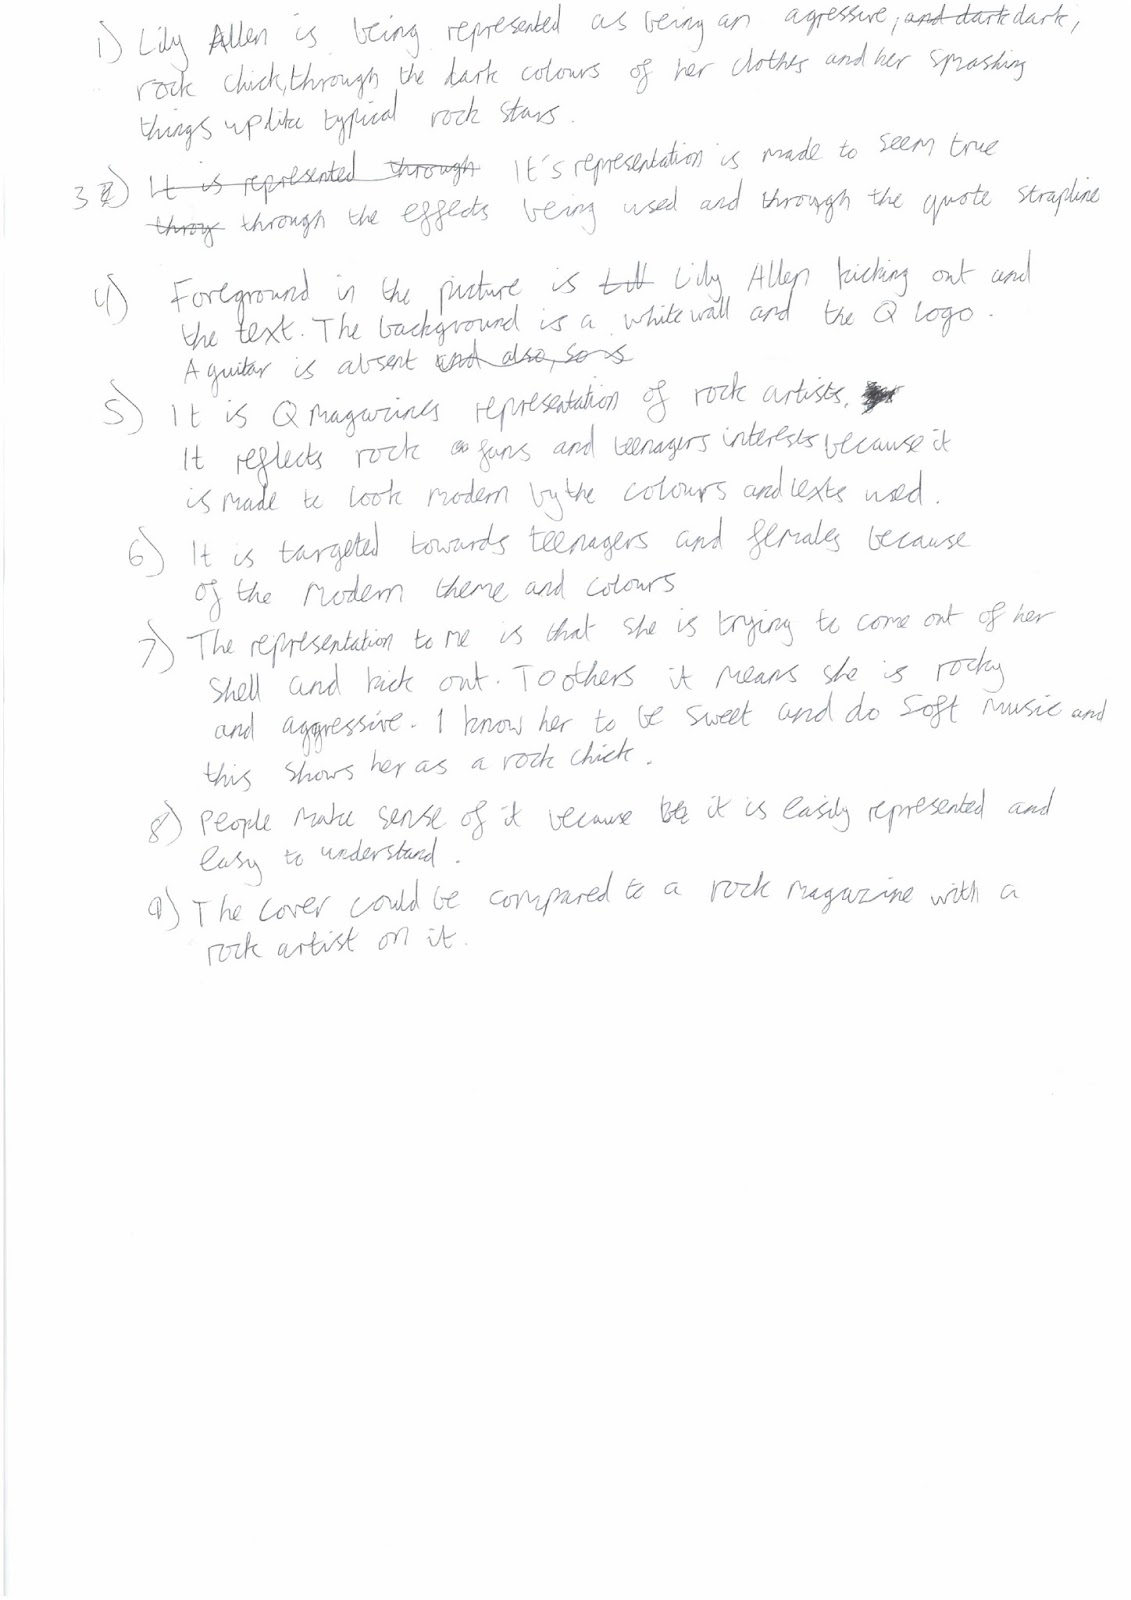 1) Lily Allen is being represented as being an agressive, and dark dark,
rock chick, through the dark colours of her clothes and her smashing
things up like typical rock stars.
3 2) It is represented through It's representation is made to seem true
throy through the effects being used and through the quote strapline
4) Foreground in the picture is Lily Allen kicking out and
the text. The background is a white wall and the Q logo.
A guitar is absent and also, so is
5) It is Q magazines representation of rock artists.
It reflects rock fans and teenagers interests because it
is made to look modern by the colours and texts used.
6) It is targeted towards teenagers and females because
of the modern theme and colours
7) The representation to me is that she is trying to come out of her
shell and kick out. To others it means she is rocky
and aggressive. I know her to be sweet and do soft music and
this shows her as a rock chick.
8) People make sense of it because be it is easily represented and
easy to understand.
9) The cover could be compared to a rock magazine with a
rock artist on it.